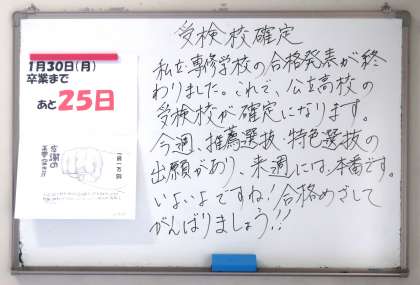 1月30日(月)
卒業まで
あと25日
受検校確定
私立・専修学校の合格発表が終
わりました。これで、公立高校の
受検校が確定になります。
今週、推薦選抜、特色選抜の
出願があり、来週には、本番です。
いよいよですね!合格めざして
がんばりましょう!!